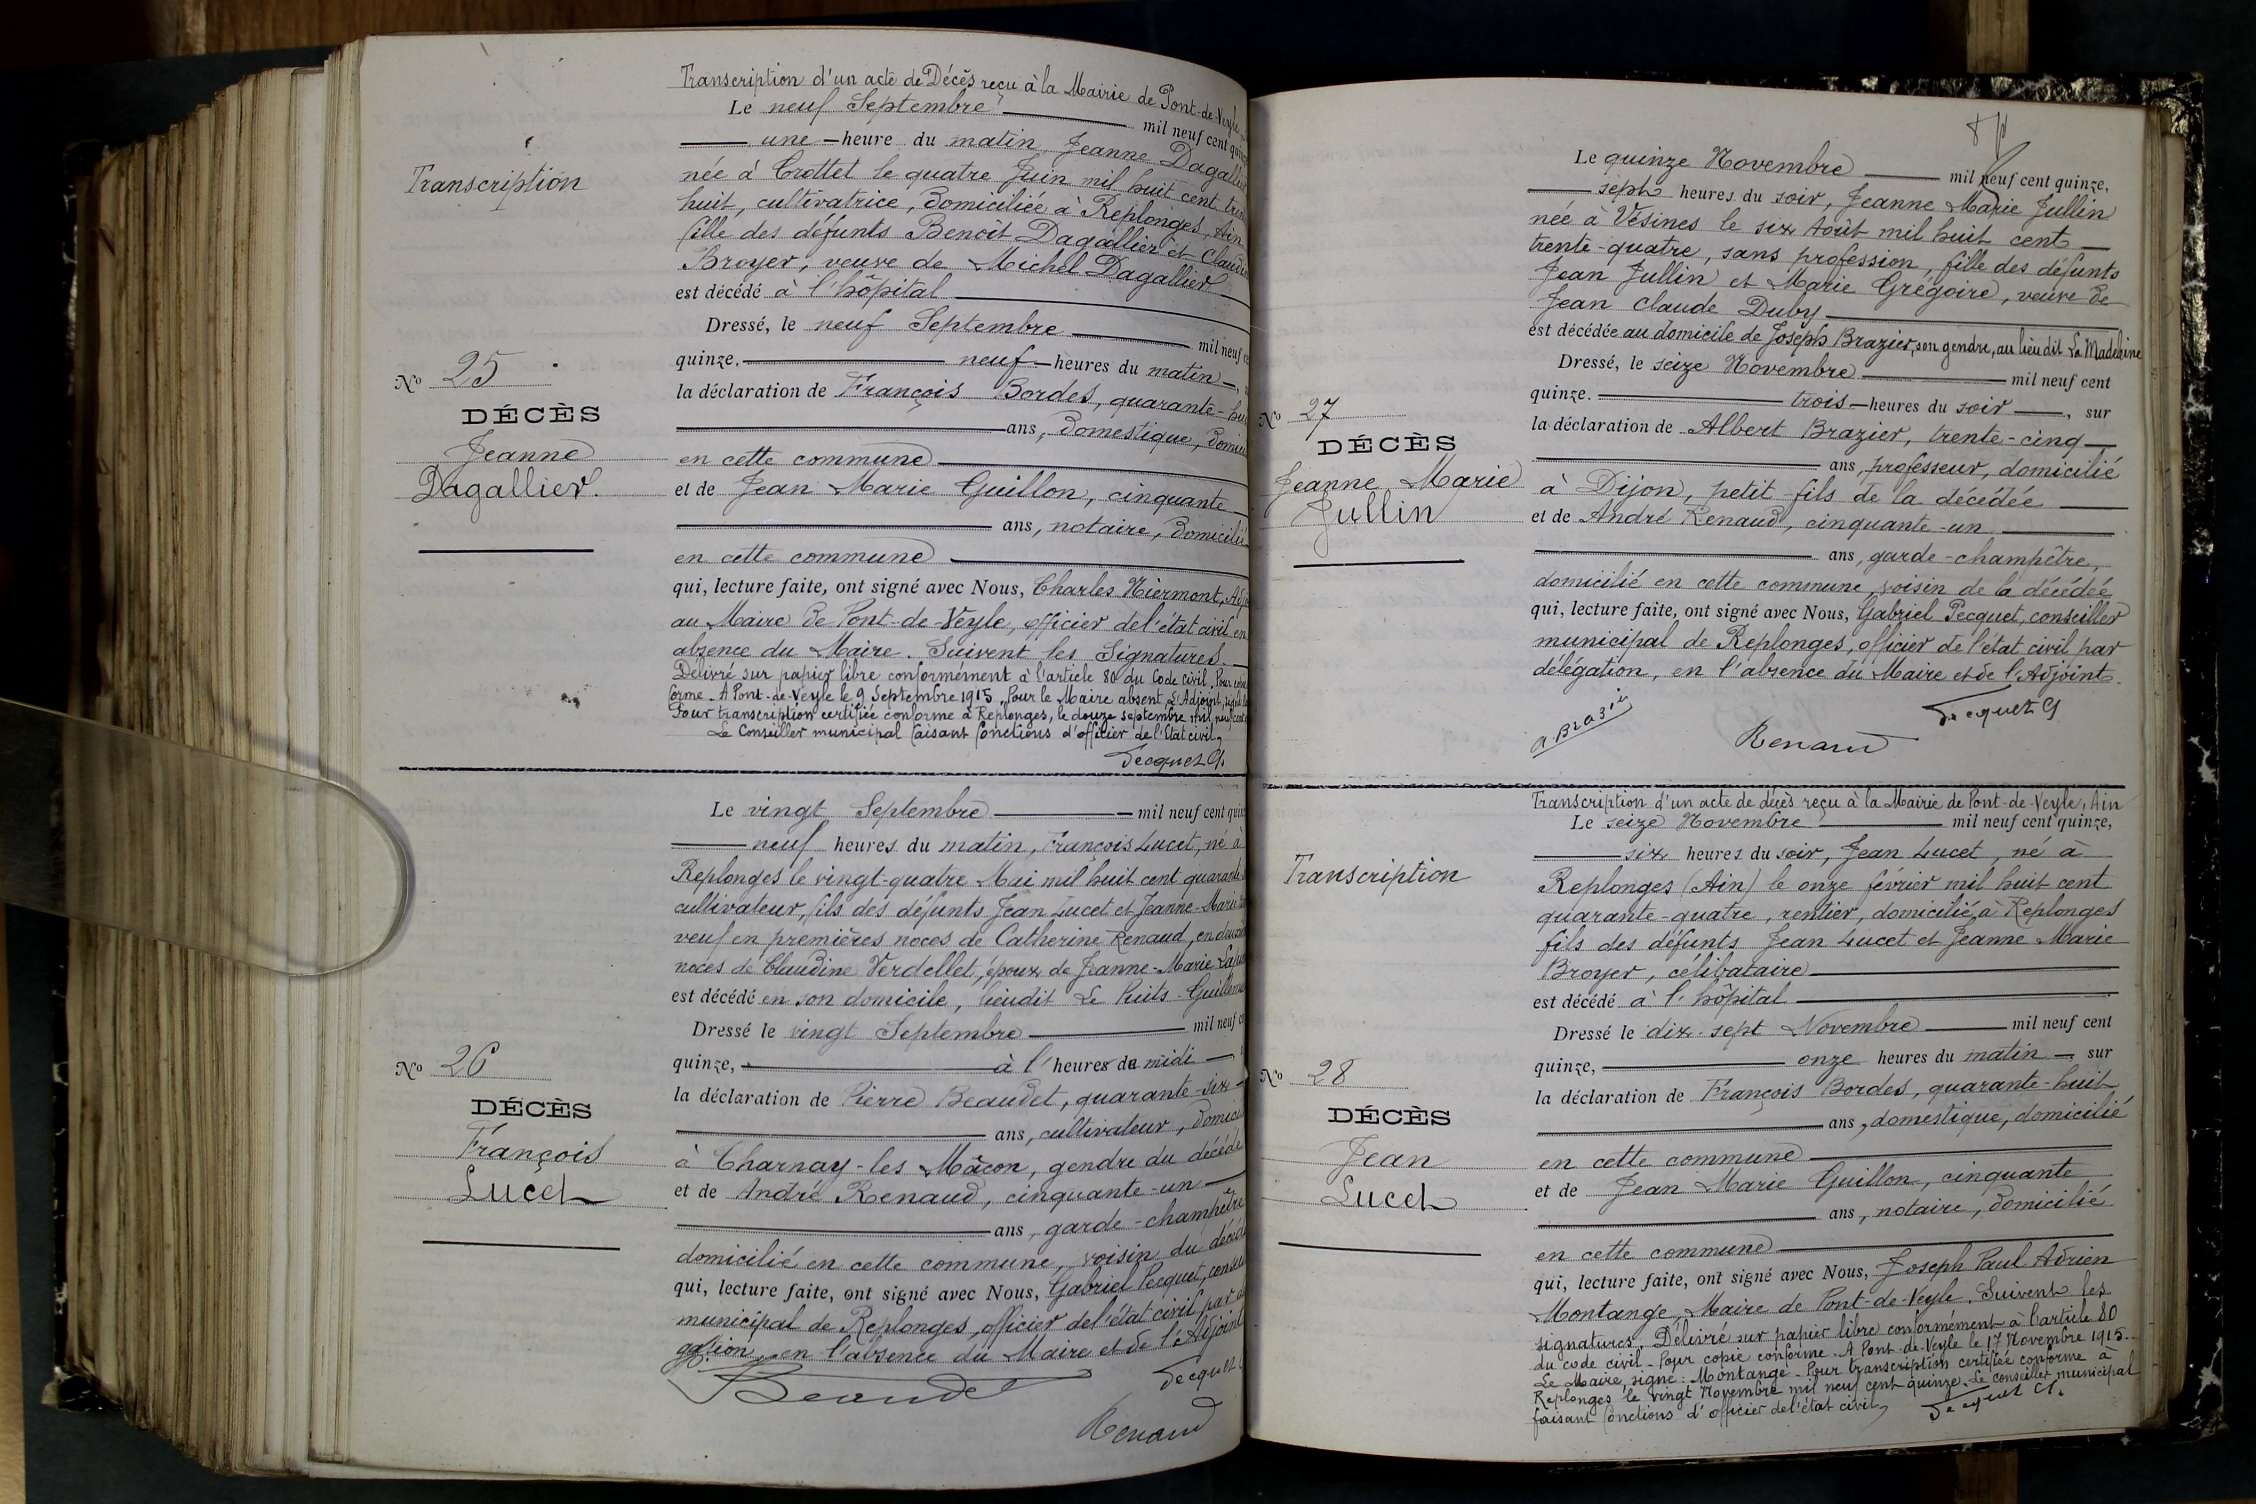 Transcription d'un acte de Décès reçu à la Mairie de Pont-de-Veyle
Le neuf Septembre mil neuf cent quinze
une heure du matin, Jeanne Dagallier
Transcription
née à Crottet le quatre Juin mil huit cent trente
huit, cultivatrice, domiciliée à Replonges, Ain
fille des défunts Benoît Dagallier et Claudine
Broyer, veuve de Michel Dagallier
est décédé à l'hôpital
Dressé, le neuf Septembre mil neuf cent
quinze. neuf heures du matin
No 25
DÉCÈS
Jeanne
Dagallier.
la déclaration de François Bordes, quarante-huit
ans, domestique, domicilié
en cette commune
et de Jean Marie Guillon, cinquante
ans, notaire, domicilié
en cette commune
qui, lecture faite, ont signé avec Nous, Charles Niermont, Adjoint
au Maire de Pont-de-Veyle, officier de l'état civil en
absence du Maire. Suivent les Signatures.
Délivré sur papier libre conformément à l'article 80 du Code civil. Pour copie
forme. A Pont-de-Veyle le 9 Septembre 1915. Pour le Maire absent, L'Adjoint, signé
Pour transcription certifiée conforme à Replonges, le douze septembre mil neuf cent
Le Conseiller municipal faisant fonctions d'officier de l'Etat civil,
Pecquet G.
Le vingt Septembre mil neuf cent quinze
neuf heures du matin, François Lucet, né à
Replonges le vingt-quatre Mai mil huit cent quarante
cultivateur, fils des défunts Jean Lucet et Jeanne-Marie
veuf en premières noces de Catherine Renaud, en deuxièmes
noces de Claudine Verdellet, époux de Jeanne-Marie
est décédé en son domicile, lieudit Le Puits-Guillemin
Dressé le vingt Septembre mil neuf cent
quinze, à l'heure de midi
No 26
DÉCÈS
François
Lucet
la déclaration de Pierre Beaudet, quarante-six
ans, cultivateur, domicilié
à Charnay-les Mâcon, gendre du décédé
et de André Renaud, cinquante-un
ans, garde-champêtre
domicilié en cette commune, voisin du décédé
qui, lecture faite, ont signé avec Nous, Gabriel Pecquet, conseiller
municipal de Replonges, officier de l'état civil par délé
gation, en l'absence du Maire et de l'Adjoint
Beaudet
Pecquet G
Renaud
Le quinze Novembre mil neuf cent quinze,
sept heures du soir, Jeanne Marie Jullin
née à Vésines le six Août mil huit cent
trente-quatre, sans profession, fille des défunts
Jean Jullin et Marie Grégoire, veuve de
Jean Claude Duby
est décédée au domicile de Joseph Brazier, son gendre, au lieu dit La Madeleine
Dressé, le seize Novembre mil neuf cent
quinze. trois heures du soir, sur
No 27
DÉCÈS
Jeanne Marie
Jullin
la déclaration de Albert Brazier, trente-cinq
ans, professeur, domicilié
à Dijon, petit-fils de la décédée
et de André Renaud, cinquante-un
ans, garde-champêtre,
domicilié en cette commune, voisin de la décédée
qui, lecture faite, ont signé avec Nous, Gabriel Pecquet, conseiller
municipal de Replonges, officier de l'état civil par
délégation, en l'absence du Maire et de l'Adjoint.
A Brazier
Renaud
Pecquet G
Transcription d'un acte de décès reçu à la Mairie de Pont-de-Veyle, Ain
Le seize Novembre mil neuf cent quinze,
six heures du soir, Jean Lucet, né à
Transcription
Replonges (Ain) le onze février mil huit cent
quarante-quatre, rentier, domicilié, à Replonges
fils des défunts Jean Lucet et Jeanne Marie
Broyer, célibataire
est décédé à l'hôpital
Dressé le dix-sept Novembre mil neuf cent
quinze, onze heures du matin, sur
No 28
DÉCÈS
Jean
Lucet
la déclaration de François Bordes, quarante-huit
ans, domestique, domicilié
en cette commune
et de Jean Marie Guillon, cinquante
ans, notaire, domicilié
en cette commune
qui, lecture faite, ont signé avec Nous, Joseph Paul Adrien
Montange, Maire de Pont-de-Veyle. Suivent les
signatures. Délivré sur papier libre conformément à l'article 80
du code civil. Pour copie conforme. A Pont-de-Veyle le 17 Novembre 1915.
Le Maire, signé: Montange. Pour transcription certifiée conforme à
Replonges le vingt Novembre mil neuf cent quinze. Le conseiller municipal
faisant fonctions d'officier de l'état civil,
Pecquet G.